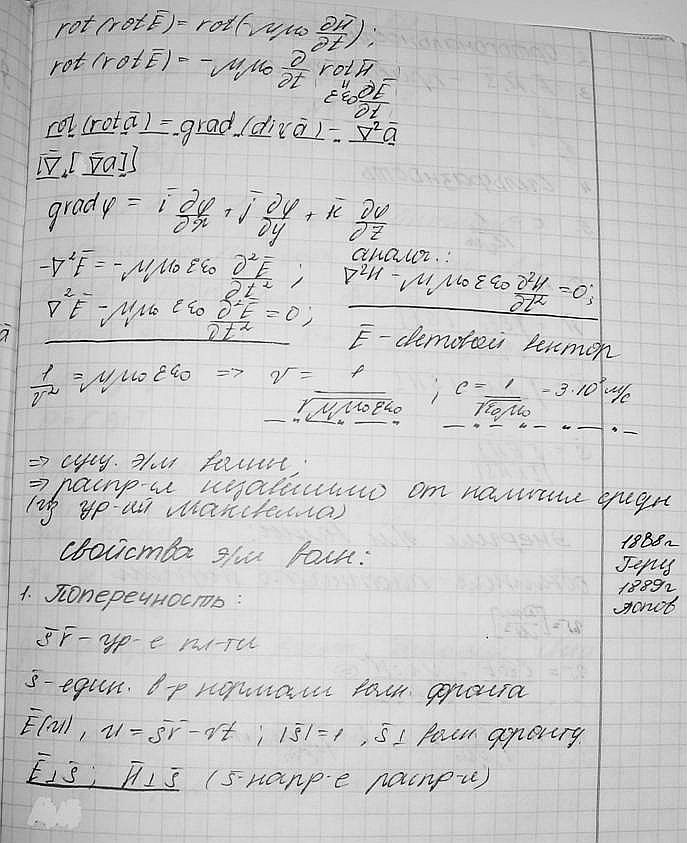 rot(rotE̅) = rot(-μμ₀ ∂H̅/∂t);
rot(rotE̅) = -μμ₀ ∂/∂t rotH̅
εε₀ ∂E̅/∂t
rot(rota̅) = grad(diva̅) - ∇²a̅
[∇̅,[∇̅a̅]]
gradφ = i̅ ∂φ/∂x + j̅ ∂φ/∂y + k̅ ∂φ/∂z
-∇²E̅ = -μμ₀εε₀ ∂²E̅/∂t²;
аналог.:
∇²H - μμ₀εε₀ ∂²H/∂t² = 0;
∇²E̅ - μμ₀εε₀ ∂²E̅/∂t² = 0;
E̅ - световой вектор
1/v² = μμ₀εε₀ => v = 1/√μμ₀εε₀; c = 1/√ε₀μ₀ = 3·10⁸ м/с
=> сущ. э/м волны;
=> распр-я независимо от наличия среды
(из ур-ий Максвелла)
Свойства э/м волн:
1888г
Герц
1889г
Попов
1. Поперечность:
s̅r̅ - ур-е пл-ти
s̅ - един. в-р нормали волн. фронта
E̅(u), u = s̅r̅ - vt; |s̅| = 1, s̅⊥ волн. фронту
E̅⊥s̅; H̅⊥s̅ (s̅-напр-е распр-я)